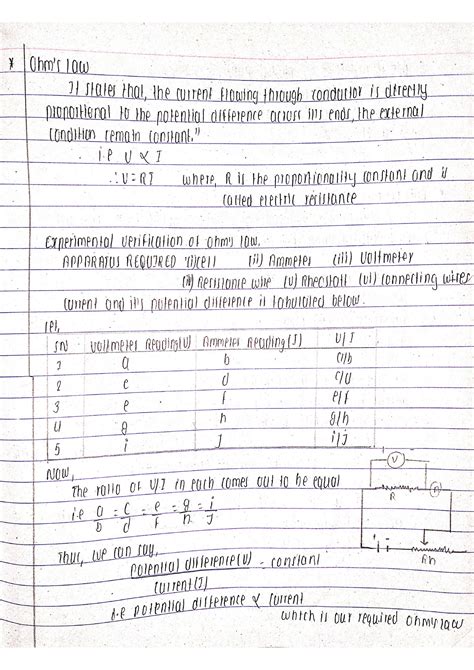 * Ohm's law
It states that, the current flowing through conductor is directly
proportional to the potential difference across its ends, the external
condition remain constant."
i.e V ∝ I
∴ V = RI where, R is the proportionality constant and is
called electric resistance
Experimental verification of ohm's law.
APPARATUS REQUIRED (i) cell (ii) Ammeter (iii) Voltmeter
(iv) Resistance wire (v) Rheostatt (vi) connecting wires
Current and its potential difference is tabulated below.
let,
SN Voltmeter Reading(V) Ammeter Reading(I) V/I
1 a b a/b
2 c d c/d
3 e f e/f
4 g h g/h
5 i j i/j
Now,
The ratio of V/I in each comes out to be equal
i.e a/b = c/d = e/f = g/h = i/j
V
R
A
Rh
Thus, we can say,
Potential difference(V) = constant
Current(I)
i.e potential difference ∝ current
which is our required ohm's law